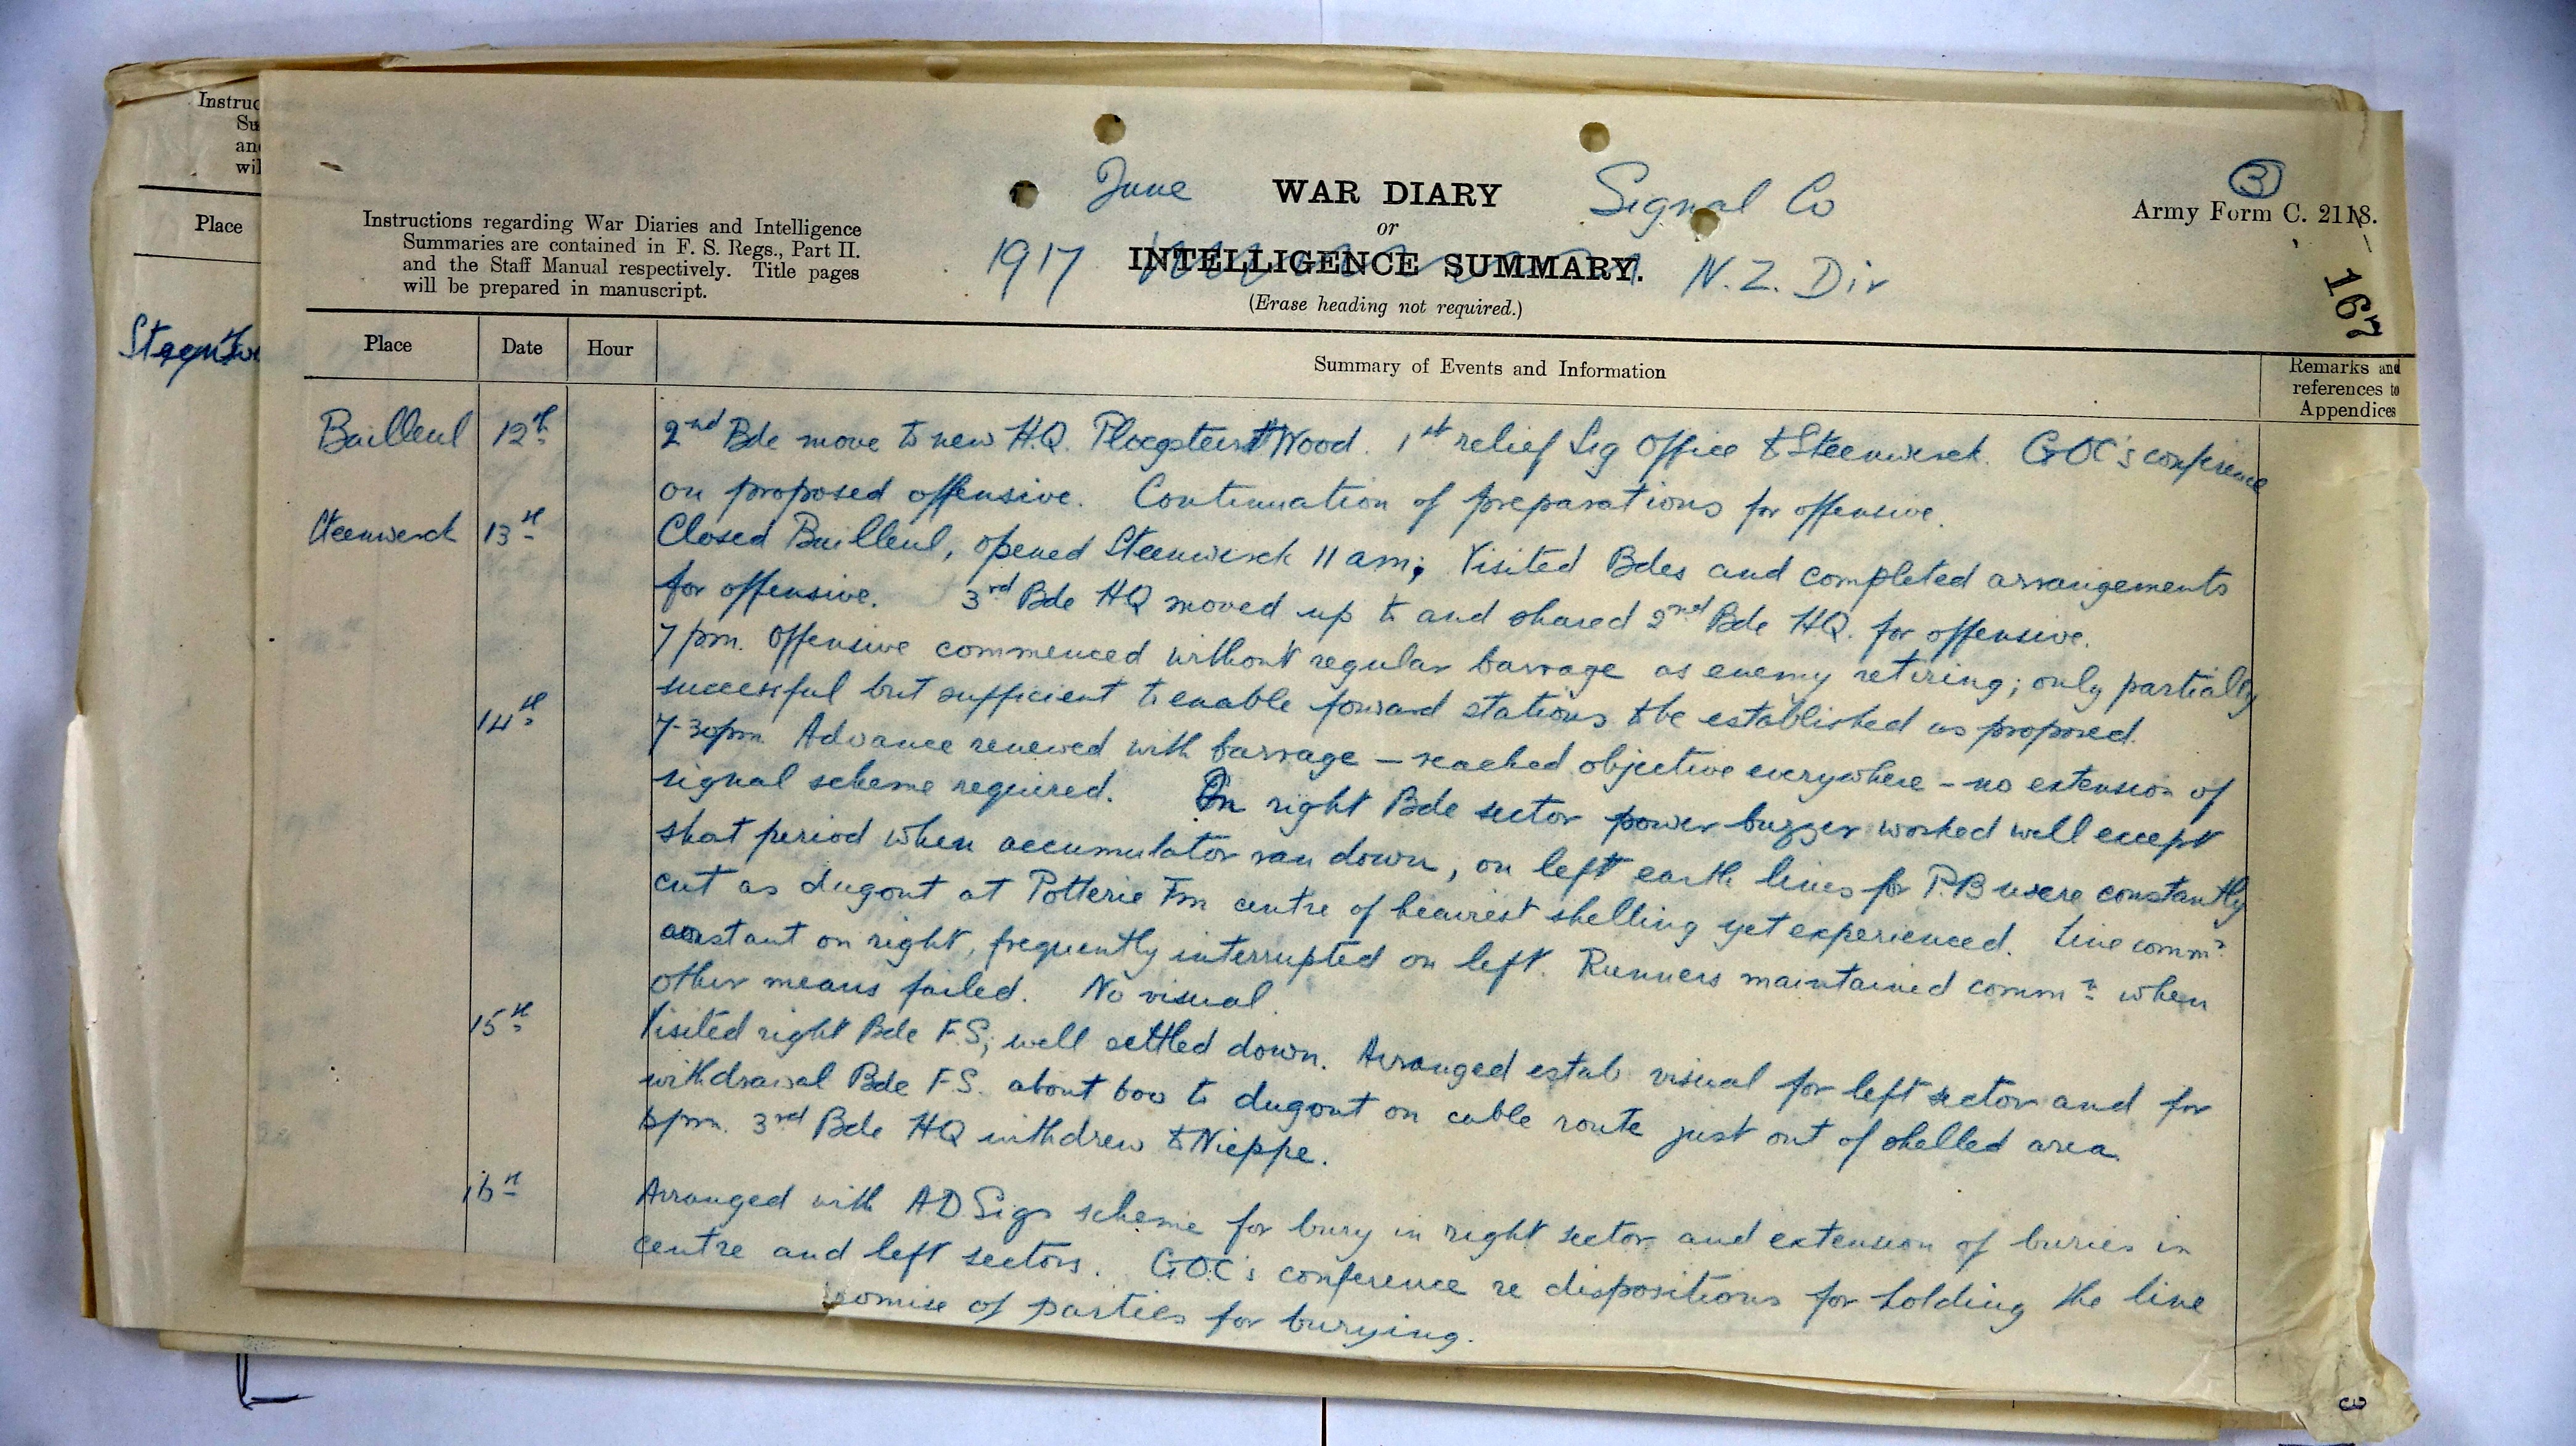 Instruc
Su
an
wil
Place
June
WAR DIARY
or
1917
INTELLIGENCE SUMMARY.
(Erase heading not required.)
Signal Co
N. Z. Div
Instructions regarding War Diaries and Intelligence
Summaries are contained in F. S. Regs., Part II.
and the Staff Manual respectively. Title pages
will be prepared in manuscript.
3
Army Form C. 2118.
167
Place
Date
Hour
Summary of Events and Information
Remarks and
references to
Appendices
Bailleul 12th 2nd Bde move to new H.Q. Ploegsteirt Wood. 1st relief Sig Office to Steenwerck. GOC's conference
on proposed offensive. Continuation of preparations for offensive.
Steenwerck 13th Closed Bailleul, opened Steenwerck 11 am; Visited Bdes and completed arrangements
for offensive. 3rd Bde HQ moved up to and shared 2nd Bde HQ. for offensive.
7 pm. Offensive commenced without regular barrage as enemy retiring; only partially
successful but sufficient to enable forward stations to be established as proposed.
14th 7-30pm Advance renewed with barrage – reached objective everywhere – no extension of
signal scheme required. On right Bde sector power buzzer worked well except
short period when accumulator ran down, on left earth lines for P.B were constantly
cut as dugout at Potterie Fm centre of heaviest shelling yet experienced. Line commn
constant on right, frequently interrupted on left. Runners maintained commn when
other means failed. No visual.
15th Visited right Bde F.S; well settled down. Arranged estab visual for left sector and for
withdrawal Bde F.S. about 600 to dugout on cable route just out of shelled area.
6pm. 3rd Bde HQ withdrew to Nieppe.
16th Arranged with A.D. Sigs scheme for bury in right sector and extension of buries in
centre and left sectors. G.O.C's conference re dispositions for holding the line
promise of parties for burying.
3